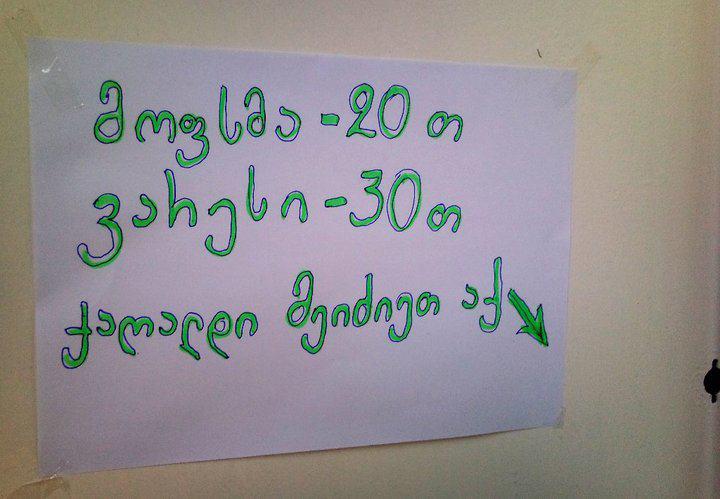 მოფსმა - 20 თ
ვარესი - 30 თ
ქაღალდი შეიძიეთ აქ